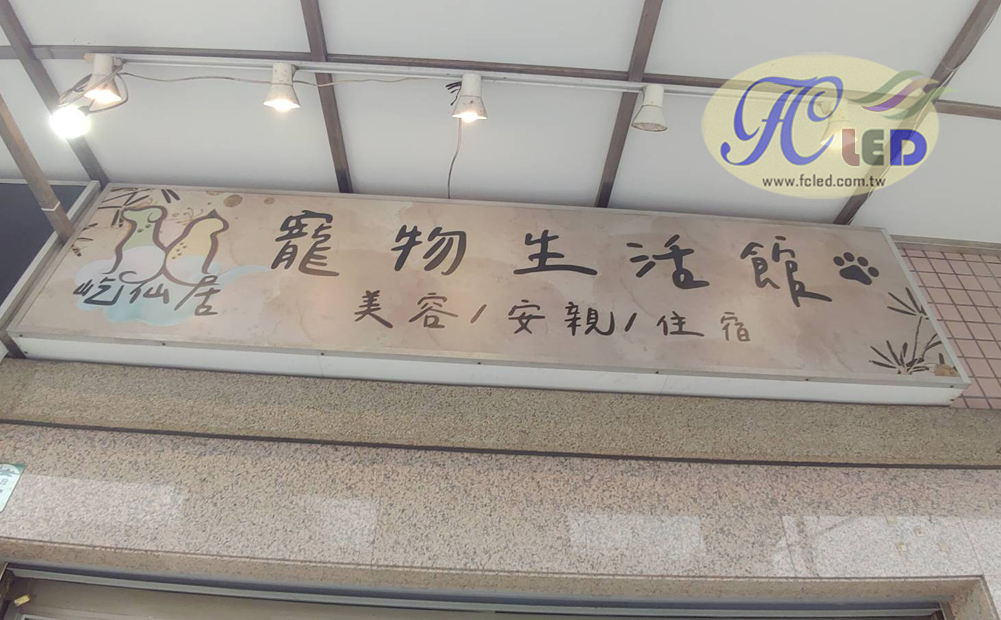 FC LED
www.fcled.com.tw
寵物生活館
屹仙居
美容/安親/住宿